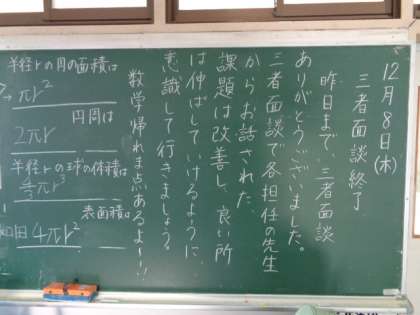 12月8日(木)
三者面談終了
昨日まで、三者面談
ありがとうございました。
三者面談で各担任の先生
からお話された
課題は改善し、良い所
は伸ばしていけるように、
意識して行きましょう。
数学帰れま点あるよー!!
半径rの円の面積は
πr²
円周は
2πr
半径rの球の体積は
4/3πr³
表面積は
4πr²